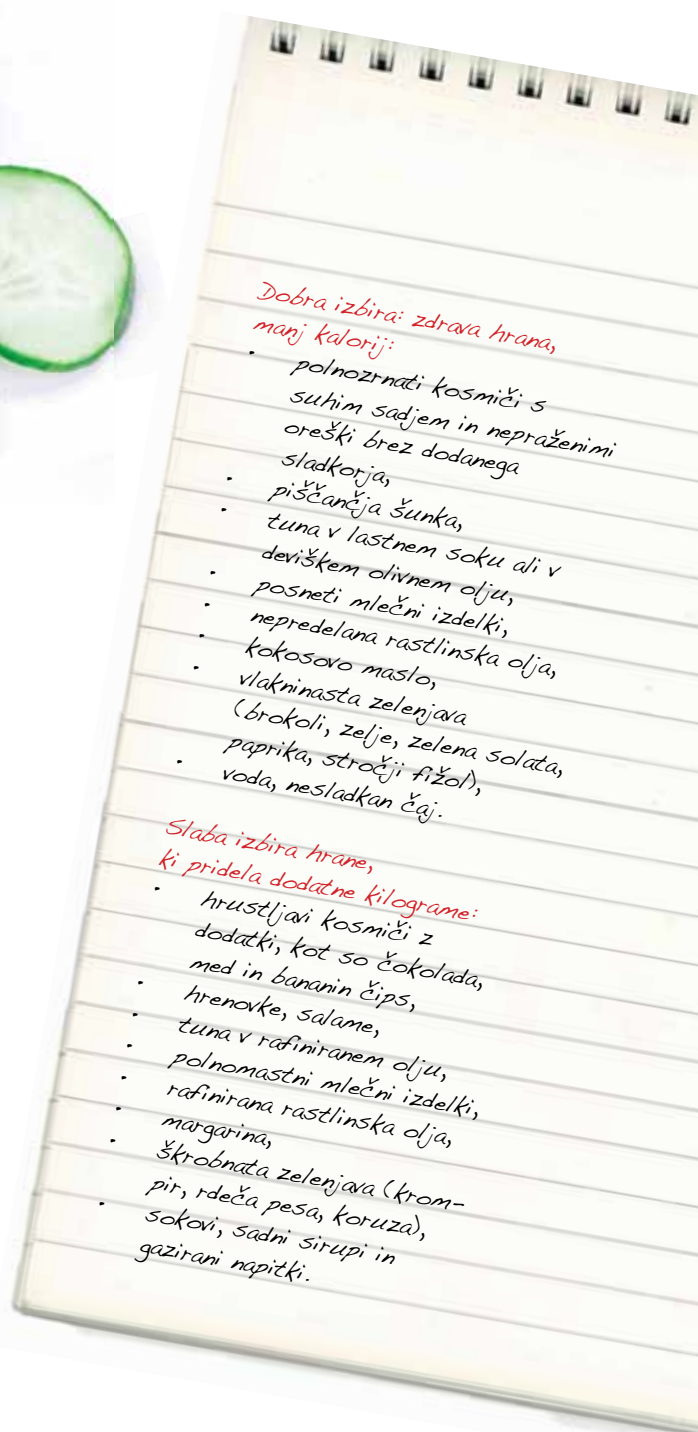 Dobra izbira: zdrava hrana,
manj kalorij:
• polnozrnati kosmiči s
suhim sadjem in nepraženimi
oreški brez dodanega
sladkorja,
• piščančja šunka,
• tuna v lastnem soku ali v
deviškem olivnem olju,
• posneti mlečni izdelki,
• nepredelana rastlinska olja,
• kokosovo maslo,
• vlakninasta zelenjava
(brokoli, zelje, zelena solata,
paprika, stročji fižol),
• voda, nesladkan čaj.
Slaba izbira hrane,
ki pridela dodatne kilograme:
• hrustljavi kosmiči z
dodatki, kot so čokolada,
med in bananin čips,
• hrenovke, salame,
• tuna v rafiniranem olju,
• polnomastni mlečni izdelki,
• rafinirana rastlinska olja,
• margarina,
• škrobnata zelenjava (krom-
pir, rdeča pesa, koruza),
• sokovi, sadni sirupi in
gazirani napitki.